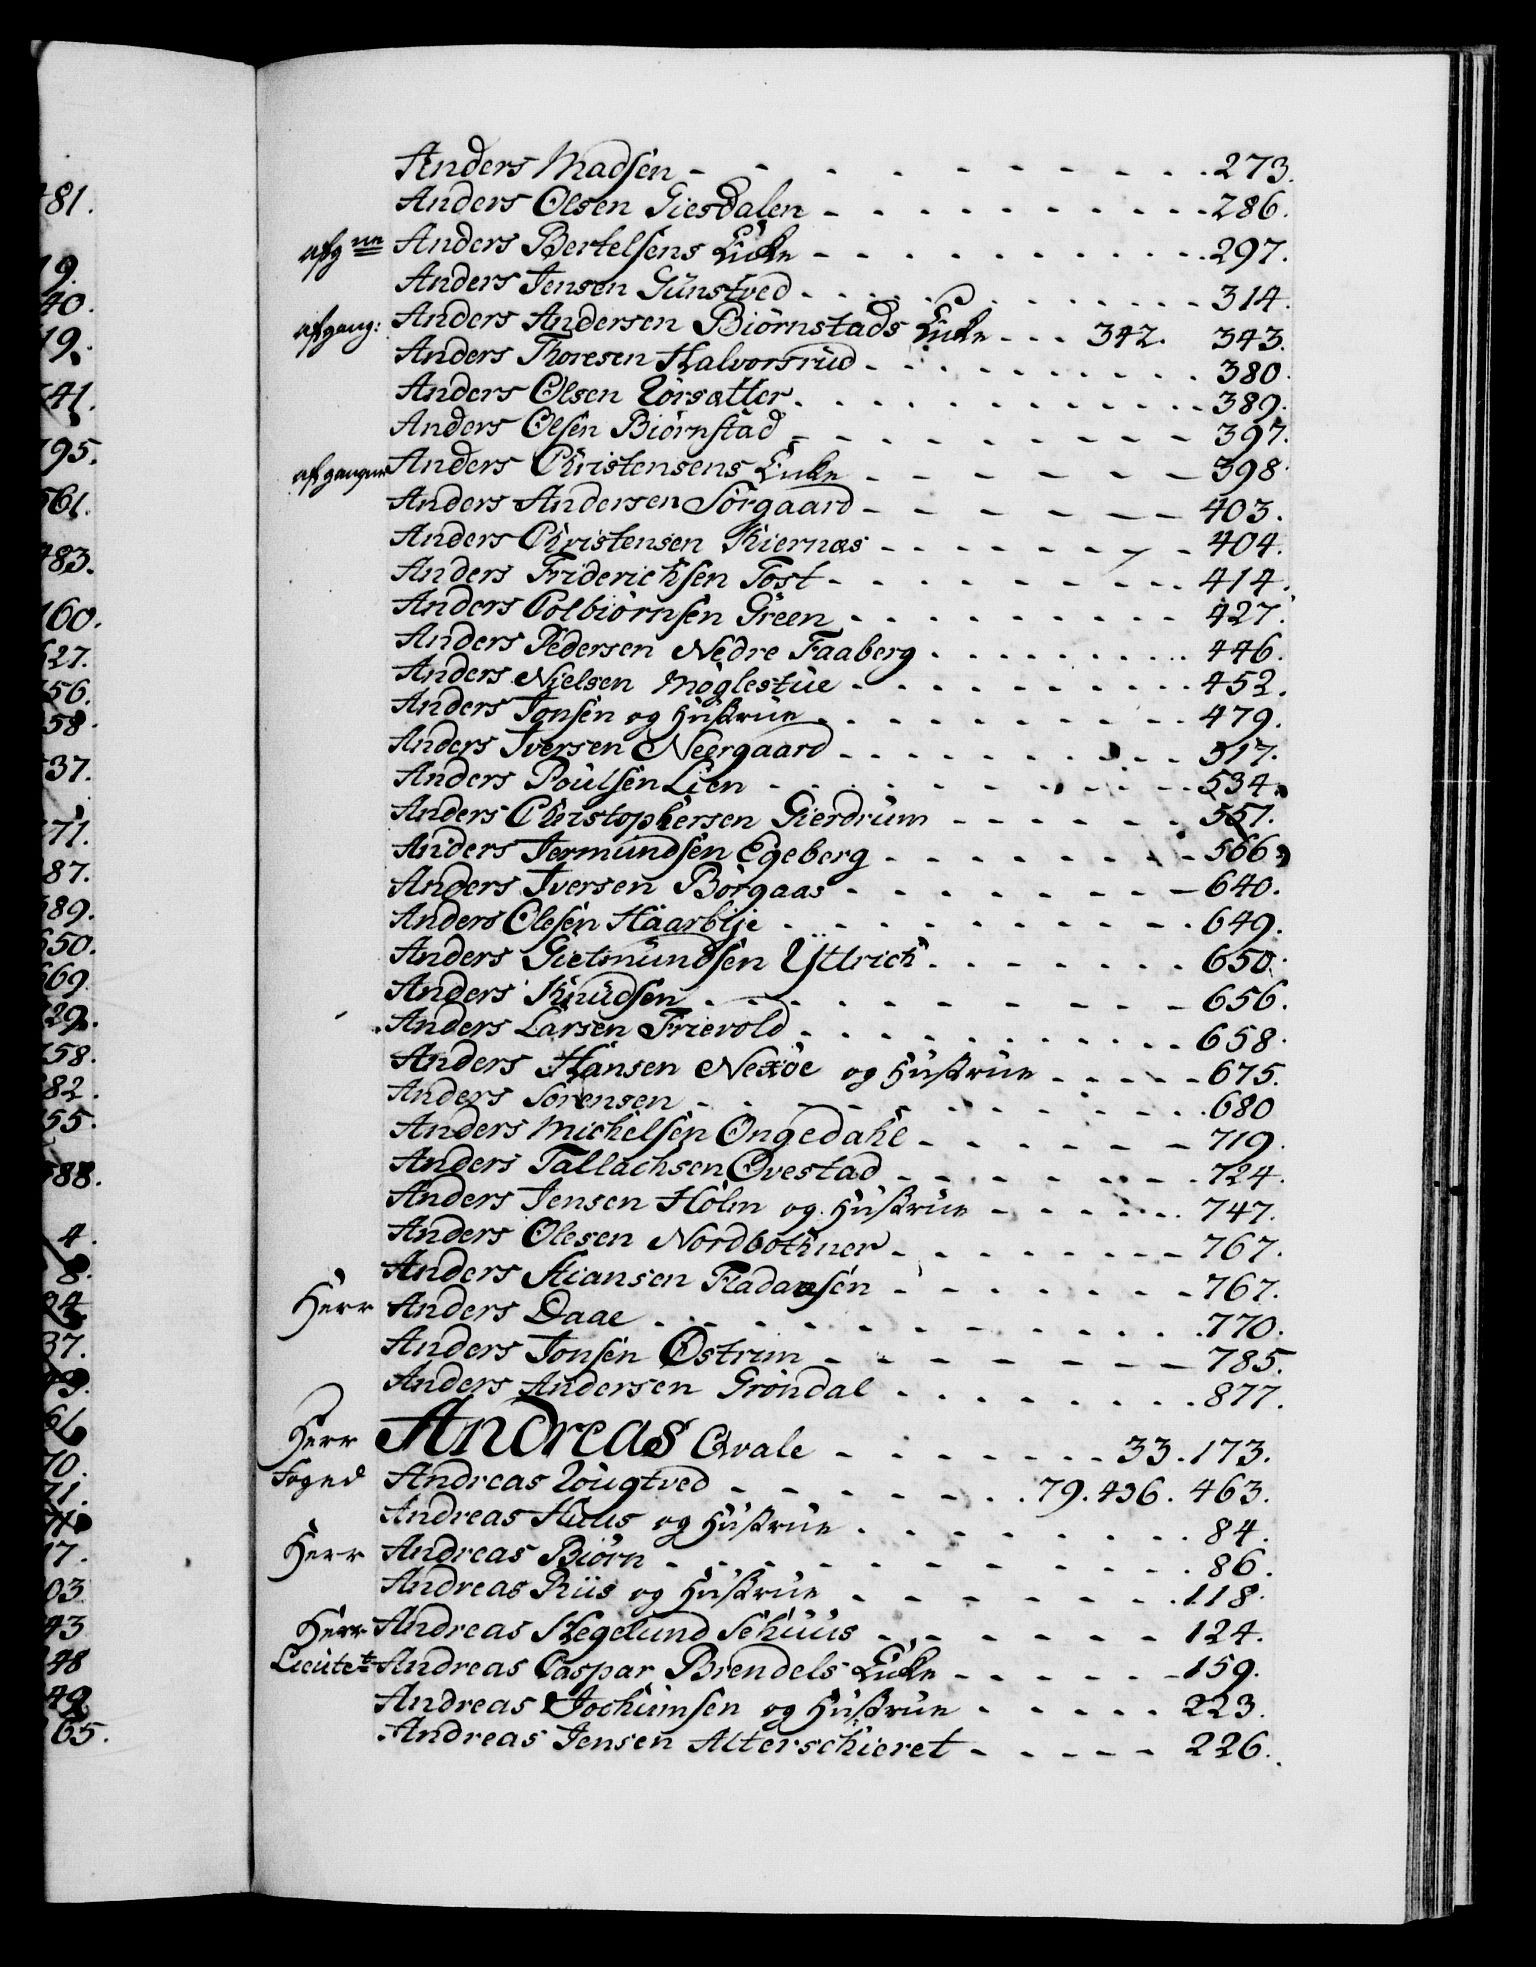 Anders Madsen - - - - - - - - - - 273.
Anders Olsen Giesdalen - - - - - - - - - 286.
afgne Anders Bertelsens Encke - - - - - - - - - 297.
Anders Jensen Günstved - - - - - - - - - 314.
afgang: Anders Andersen Biörnstads Encke - - - 342. 343.
Anders Thoresen Halvorsrüd - - - - - - - - - 380.
Anders Olsen Rörsætter - - - - - - - - - 389.
Anders Olsen Biörnstad - - - - - - - - - 397.
afgangne Anders Christensens Encke - - - - - - 398.
Anders Andersen Sörgaard - - - - - - - 403.
Anders Christensen Kiernæs - - - - - - - 404.
Anders Friderichsen Tost - - - - - - - - 414.
Anders Colbiörnsen Green - - - - - - - - 427.
Anders Pedersen Nedre Faaberg - - - - - - - - 446.
Anders Nielsen Möglestüe - - - - - - - - 452.
Anders Jonsen og Hustrue - - - - - - - - 479.
Anders Iversen Neergaard - - - - - - - - 517.
Anders Poülsen Lien - - - - - - - - - 534.
Anders Christophersen Gierdrum - - - - - - 557.
Anders Jermundsen Egeberg - - - - - - - 566.
Anders Iversen Börgaas - - - - - - - - 640.
Anders Olesen Haarbÿe - - - - - - - - - 649.
Anders Gietmundsen Ÿttrich - - - - - - - 650.
Anders Knudsen - - - - - - - - - - 656.
Anders Larsen Frievold - - - - - - - - - 658.
Anders Hansen Nexöe og Hustrue - - - - - 675.
Anders Sörensen - - - - - - - - - - 680
Anders Michelsen Ongedahl - - - - - - - 719.
Anders Tallachsen Ovestad - - - - - - - 724.
Anders Jensen Holm og Hustrue - - - - - - 747.
Anders Olesen Nordbothner - - - - - - - 767.
Anders Kiansen Fladansen - - - - - - - 767.
Herr Anders Daae - - - - - - - - - - 770.
Anders Jonsen Östrim - - - - - - - - 785.
Anders Andersen Gröndal - - - - - - - - 877.
Herr Andreas Qvale - - - - - - - 33. 173.
Foged Andreas Rougtved - - - - - - - 79. 436. 463.
Andreas Huus og Hustrue - - - - - - - - 84.
Herr Andreas Biörn - - - - - - - - - - 86.
Andreas Riis og Hustrue - - - - - - - 118.
Herr Andreas Hegelund Schuus - - - - - - 124.
Lieutet Andreas Caspar Brendels Encke - - - - - 159.
Andreas Jochumsen og Hustrue - - - - - 223.
Andreas Jensen Alterschieret - - - - - 226.